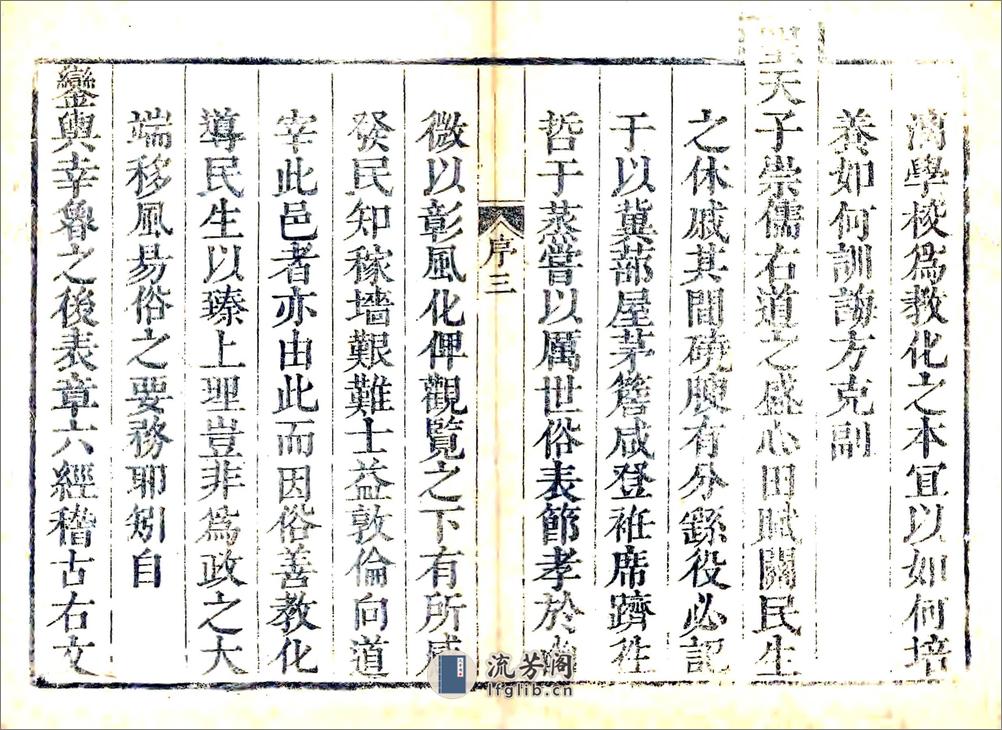 滴學校爲教化之本宜以如何培
養如何訓誨方克副
聖天子崇儒右道之盛心田賦關民生
之休戚其間磽腴有分繇役必記
于以冀蔀屋茅簷咸登袵席躋
哲于蒸嘗以厲世俗表節孝於
序三
微以彰風化俾觀覽之下有所感
發民知稼墻艱難士益敦倫向道
宰此邑者亦由此而因俗善教化
導民生以臻上理豈非爲政之大
端移風易俗之要務耶矧自
鑾輿幸魯之後表章六經稽古右文
流芳阁
lfglib.cn